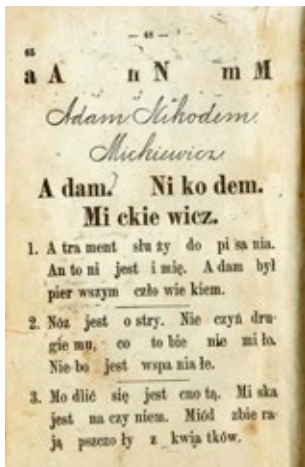 — 48 —
65
a A n N m M
Adam Nikodem
Mickiewicz
A dam. Ni ko dem.
Mi ckie wicz.
1. A tra ment słu ży do pi sa nia.
An to ni jest i mię. A dam był
pier wszym czło wie kiem.
2. Nóż jest o stry. Nie czyń dru-
gie mu, co to bie nie mi ło.
Nie bo jest wspa nia łe.
3. Mo dlić się jest cno tą. Mi ska
jest na czy niem. Miód zbie ra-
ją pszczo ły z kwia tków.